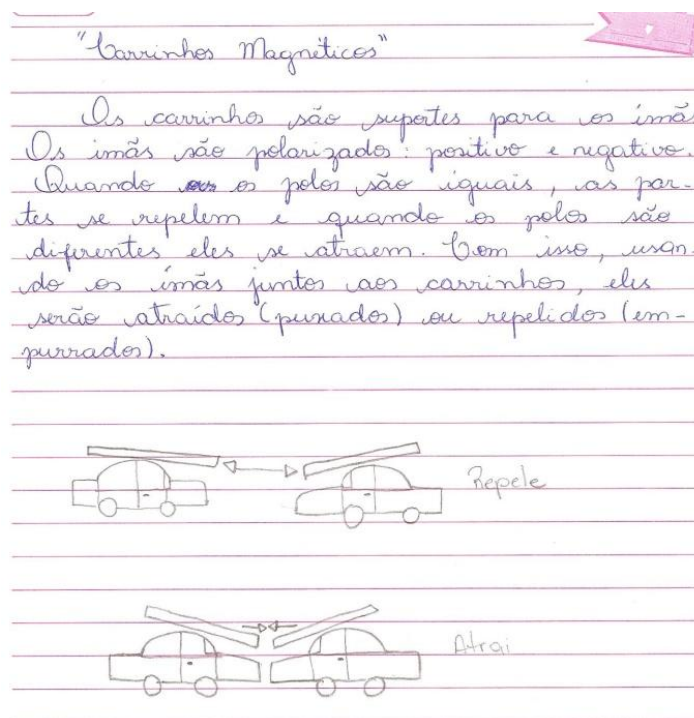 "Carrinhos Magnéticos"
Os carrinhos são suportes para os imãs
Os imãs são polarizados: positivo e negativo.
Quando os polos são iguais, as par-
tes se repelem e quando os polos são
diferentes eles se atraem. Com isso, usan-
do os imãs juntos aos carrinhos, eles
serão atraídos (puxados) ou repelidos (em-
purrados).
Repele
Atrai